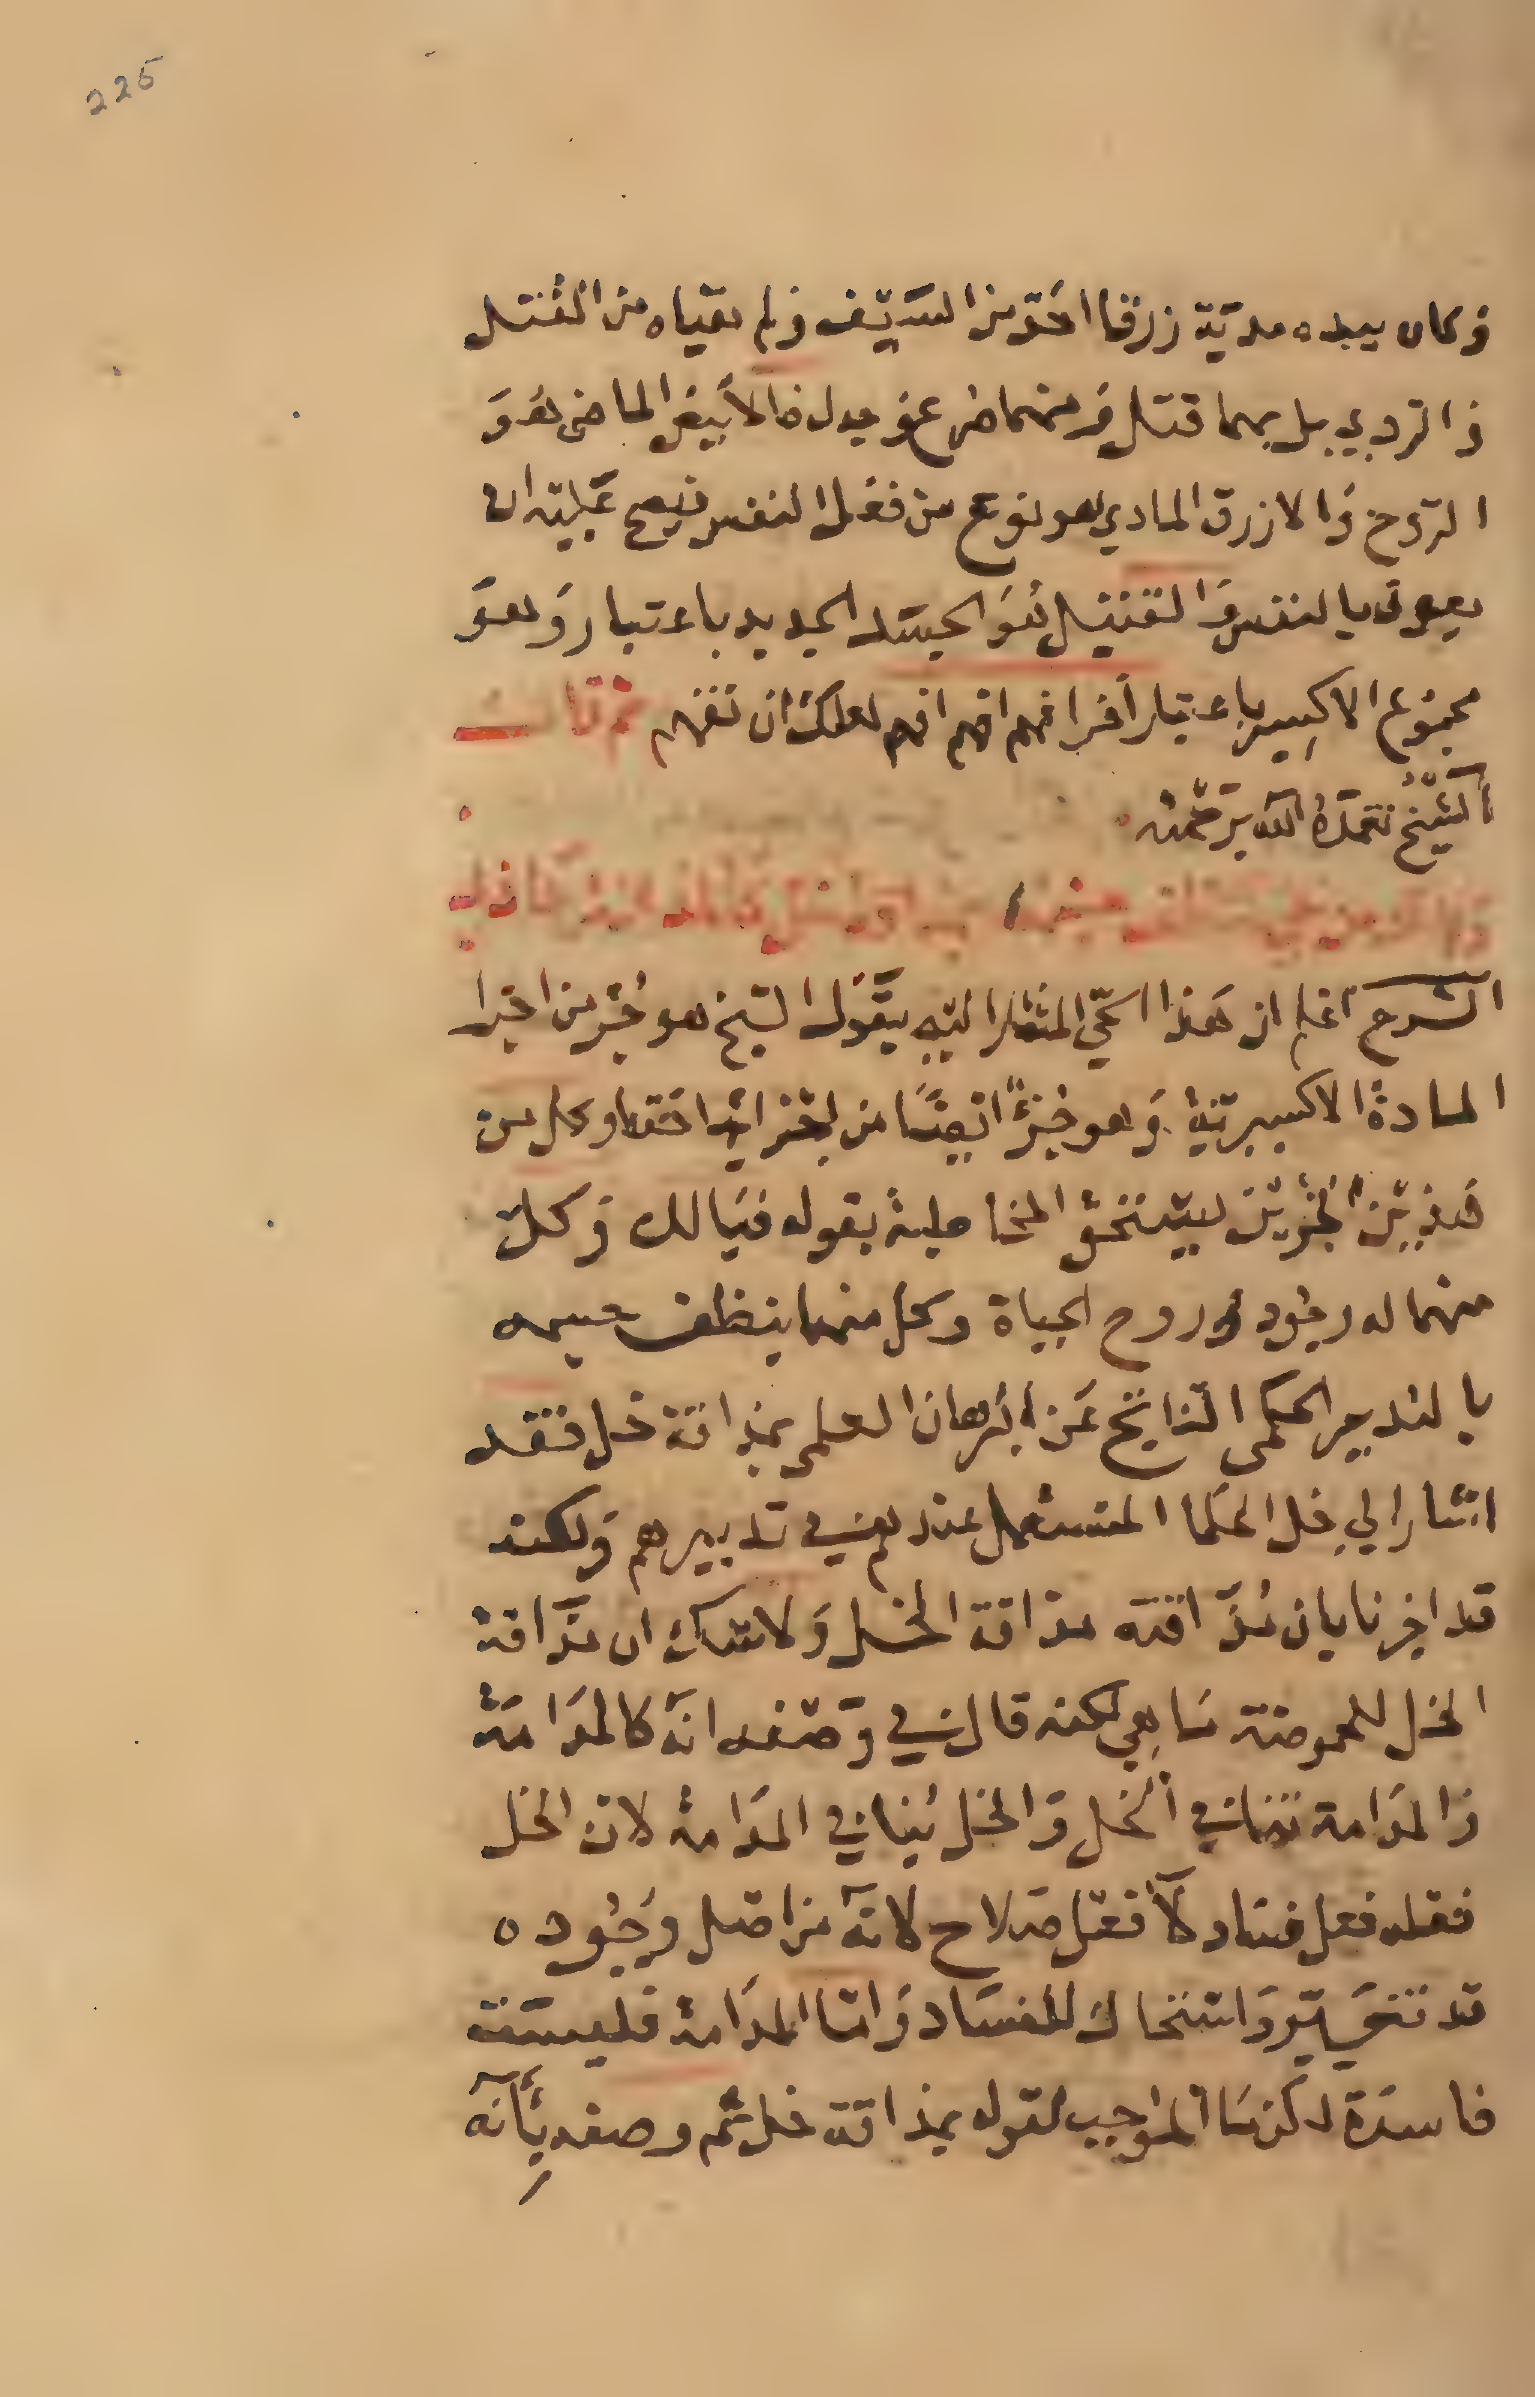 225
وكان بيده مدية زرقا احد من السيف ولم بقياه من القتل
والردي بل بهما قتل فمنهما ضرع عدل فالابيض الماضي هو
الروح والازرق المادي هو نوع من فعل النفس فيصح عليه ان
يعرف بالنفس والقتيل هو الجسد الجديد باعتبار وهو
مجموع الاكسير باعتبار اخر افهم افهم افهم لعلك ان تفهم ثم قال
الشيخ تغمده الله برحمته
الشرح اعلم ان هذا الحي المشار اليه بقول الشيخ هو جزء من اجزا
المادة الاكسيرية وهو جزء ايضا من اجزائها وكل من
هذين الجزئين يستحق المخاطبة بقوله فيالك وكل
منهما له وجود وروح الحياة وكل منهما ينظف جسمه
بالتدبير الحكمي الناتج عن البرهان العلمي بمذاقة خل فقد
اشار الي خل الحكما المستعمل عندهم في تدبيرهم ولكنه
قد اخبرنا بان مذاقته مذاقة الخل ولا شك ان مذاقة
الخل للحموضة لكنه قال في وصفه انه كالمدامة
والمدامة تنافي الخل والخل ينافي المدامة لان الخل
فعله فعل فساد لا فعل صلاح لانه من اصل وجوده
قد تغير واستحال للفساد واما المدامة فليست
فاسدة لكن ما الموجب لقوله بمذاقة خل ثم وصفه بأنه